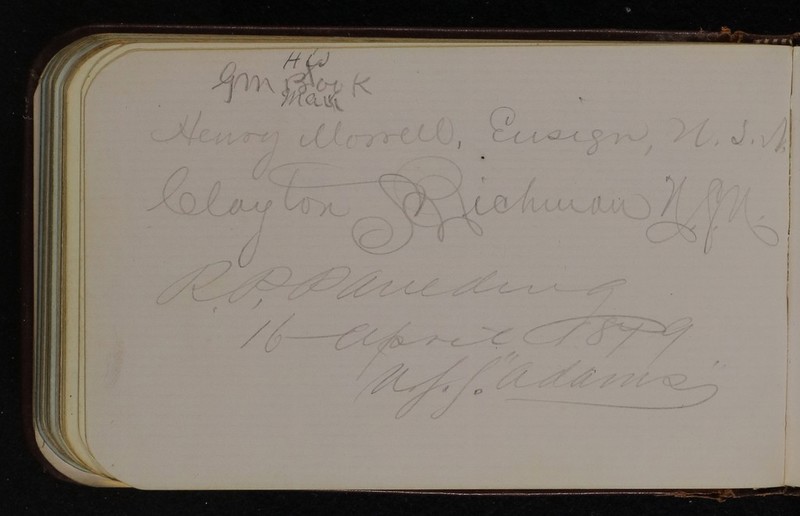 H W
Gm Book
Main
Henry Morrell, Ensign, U.S.N.
Clayton S Richman U.S.N.
R.P. Paulding
16 April 1879
U.S.S. "Adams"